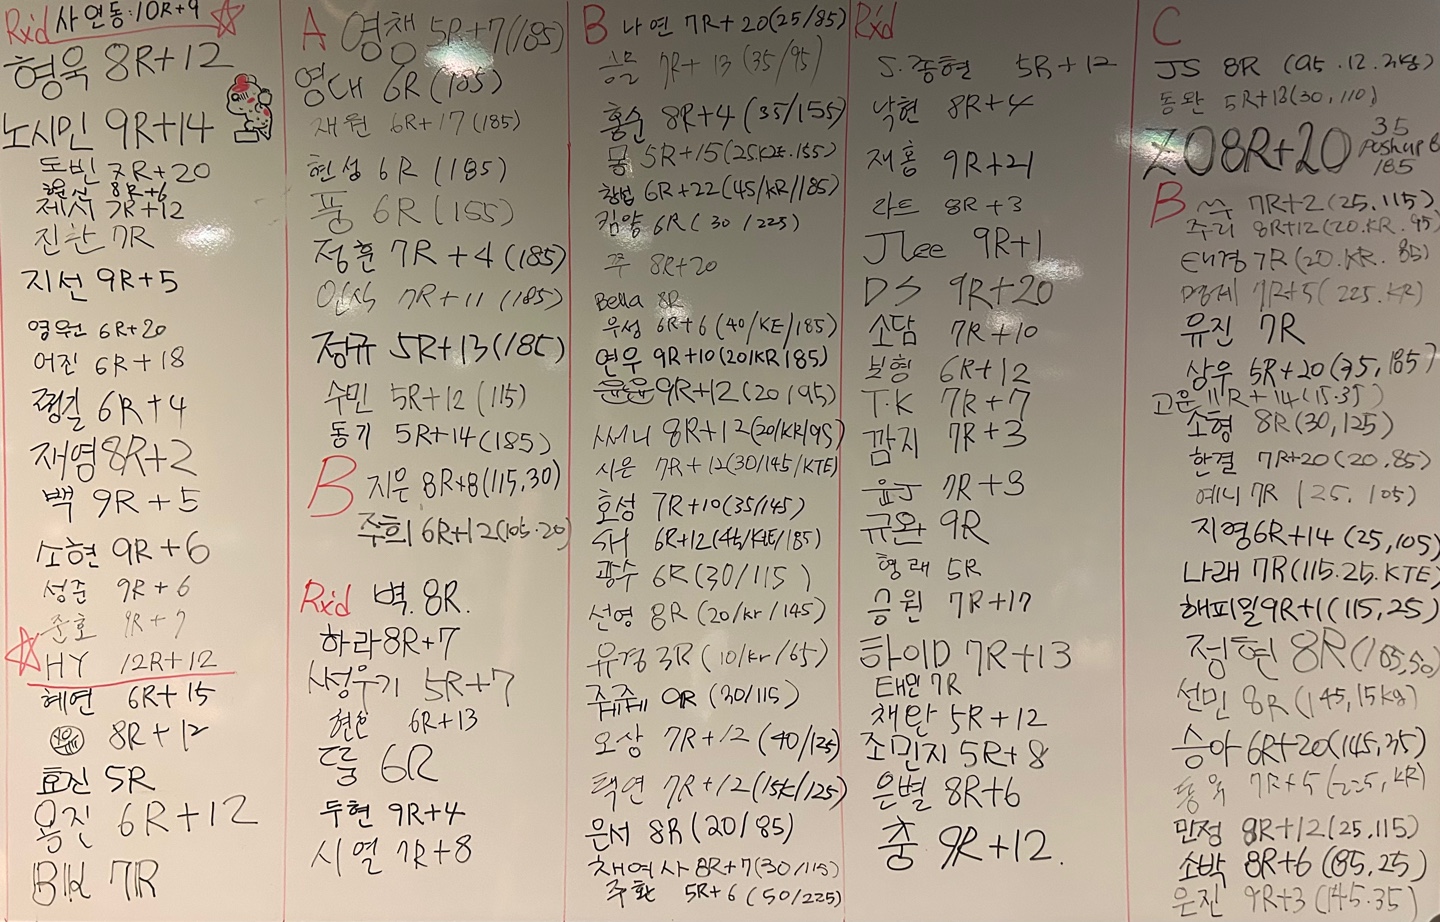 Rxd 사연동:10R+9
형욱 8R+12
노시민 9R+14
도빈 7R+20
현신 8R+6
제시 7R+12
진찬 7R
지선 9R+5
영원 6R+20
어진 6R+18
정길 6R+4
재영 8R+2
백 9R+5
소현 9R+6
성준 9R+6
준호 9R+7
HY 12R+12
혜연 6R+15
8R+12
효진 5R
용진 6R+12
BK 7R
A 영챙 5R+7(185)
영대 6R(185)
재원 6R+17(185)
현성 6R(185)
풍 6R(155)
정훈 7R+4(185)
인식 7R+11(185)
정규 5R+13(185)
수민 5R+12(115)
동기 5R+14(185)
B 지은 8R+8(115,30)
주희 6R+12(105.20)
Rxd 벽.8R.
하라 8R+7
사성우기 5R+7
6R+13
6R
두현 9R+4
시열 7R+8
B 나연 7R+20(25/85)
7R+13(35/95)
홍순 8R+4(35/155)
몽 5R+15(25KZE.155)
창범 6R+22(45/KR/185)
김양 6R(30/225)
쭈 8R+20
Bella 8R
우성 6R+6(40/KE/185)
연우 9R+10(20/KR/85)
윤윤 9R+12(20/95)
써니 8R+12(20/KR/95)
시은 7R+12(30/145/KTE)
호성 7R+10(35/145)
SH 6R+12(45/KTE/185)
광수 6R(30/115)
선영 8R(20/kr/145)
유경 3R(10/kr/65)
쥬쥬 9R(30/115)
오상 7R+12(40/125)
택연 7R+12(15K/125)
은서 8R(20/85)
채여사 8R+7(30/115)
주환 5R+6(50/225)
Rxd
S.종현 5R+12
낙현 8R+4
재홍 9R+21
라트 8R+3
JLee 9R+1
DS 9R+20
소담 7R+10
보형 6R+12
T.K 7R+7
깜지 7R+3
윤J 7R+3
규완 9R
형래 5R
승원 7R+17
하이D 7R+13
태민 7R
채란 5R+12
조민지 5R+8
은별 8R+6
충 9R+12.
C
JS 8R
동완 5R+13(30,110)
ZO 8R+20 35 Pushup 185
B 쓰 7R+2(25,115)
주리 8R+12(20.KR.95)
태경 7R(20.KR.85)
명제 7R+5(225.KR)
유진 7R
상우 5R+20(35,185)
고운 11R+14(15.35)
소형 8R(30,125)
한결 7R+20(20.85)
예니 7R(25.105)
지영 6R+14(25,105)
나래 7R(115.25.KTE)
해피일 9R+1(115,25)
정현 8R(165,50)
선민 8R(145,15kg)
승아 6R+20(145,35)
동욱 7R+5(225,KR)
민정 8R+12(25.115)
소박 8R+6(85,25)
은진 9R+3(145.35)